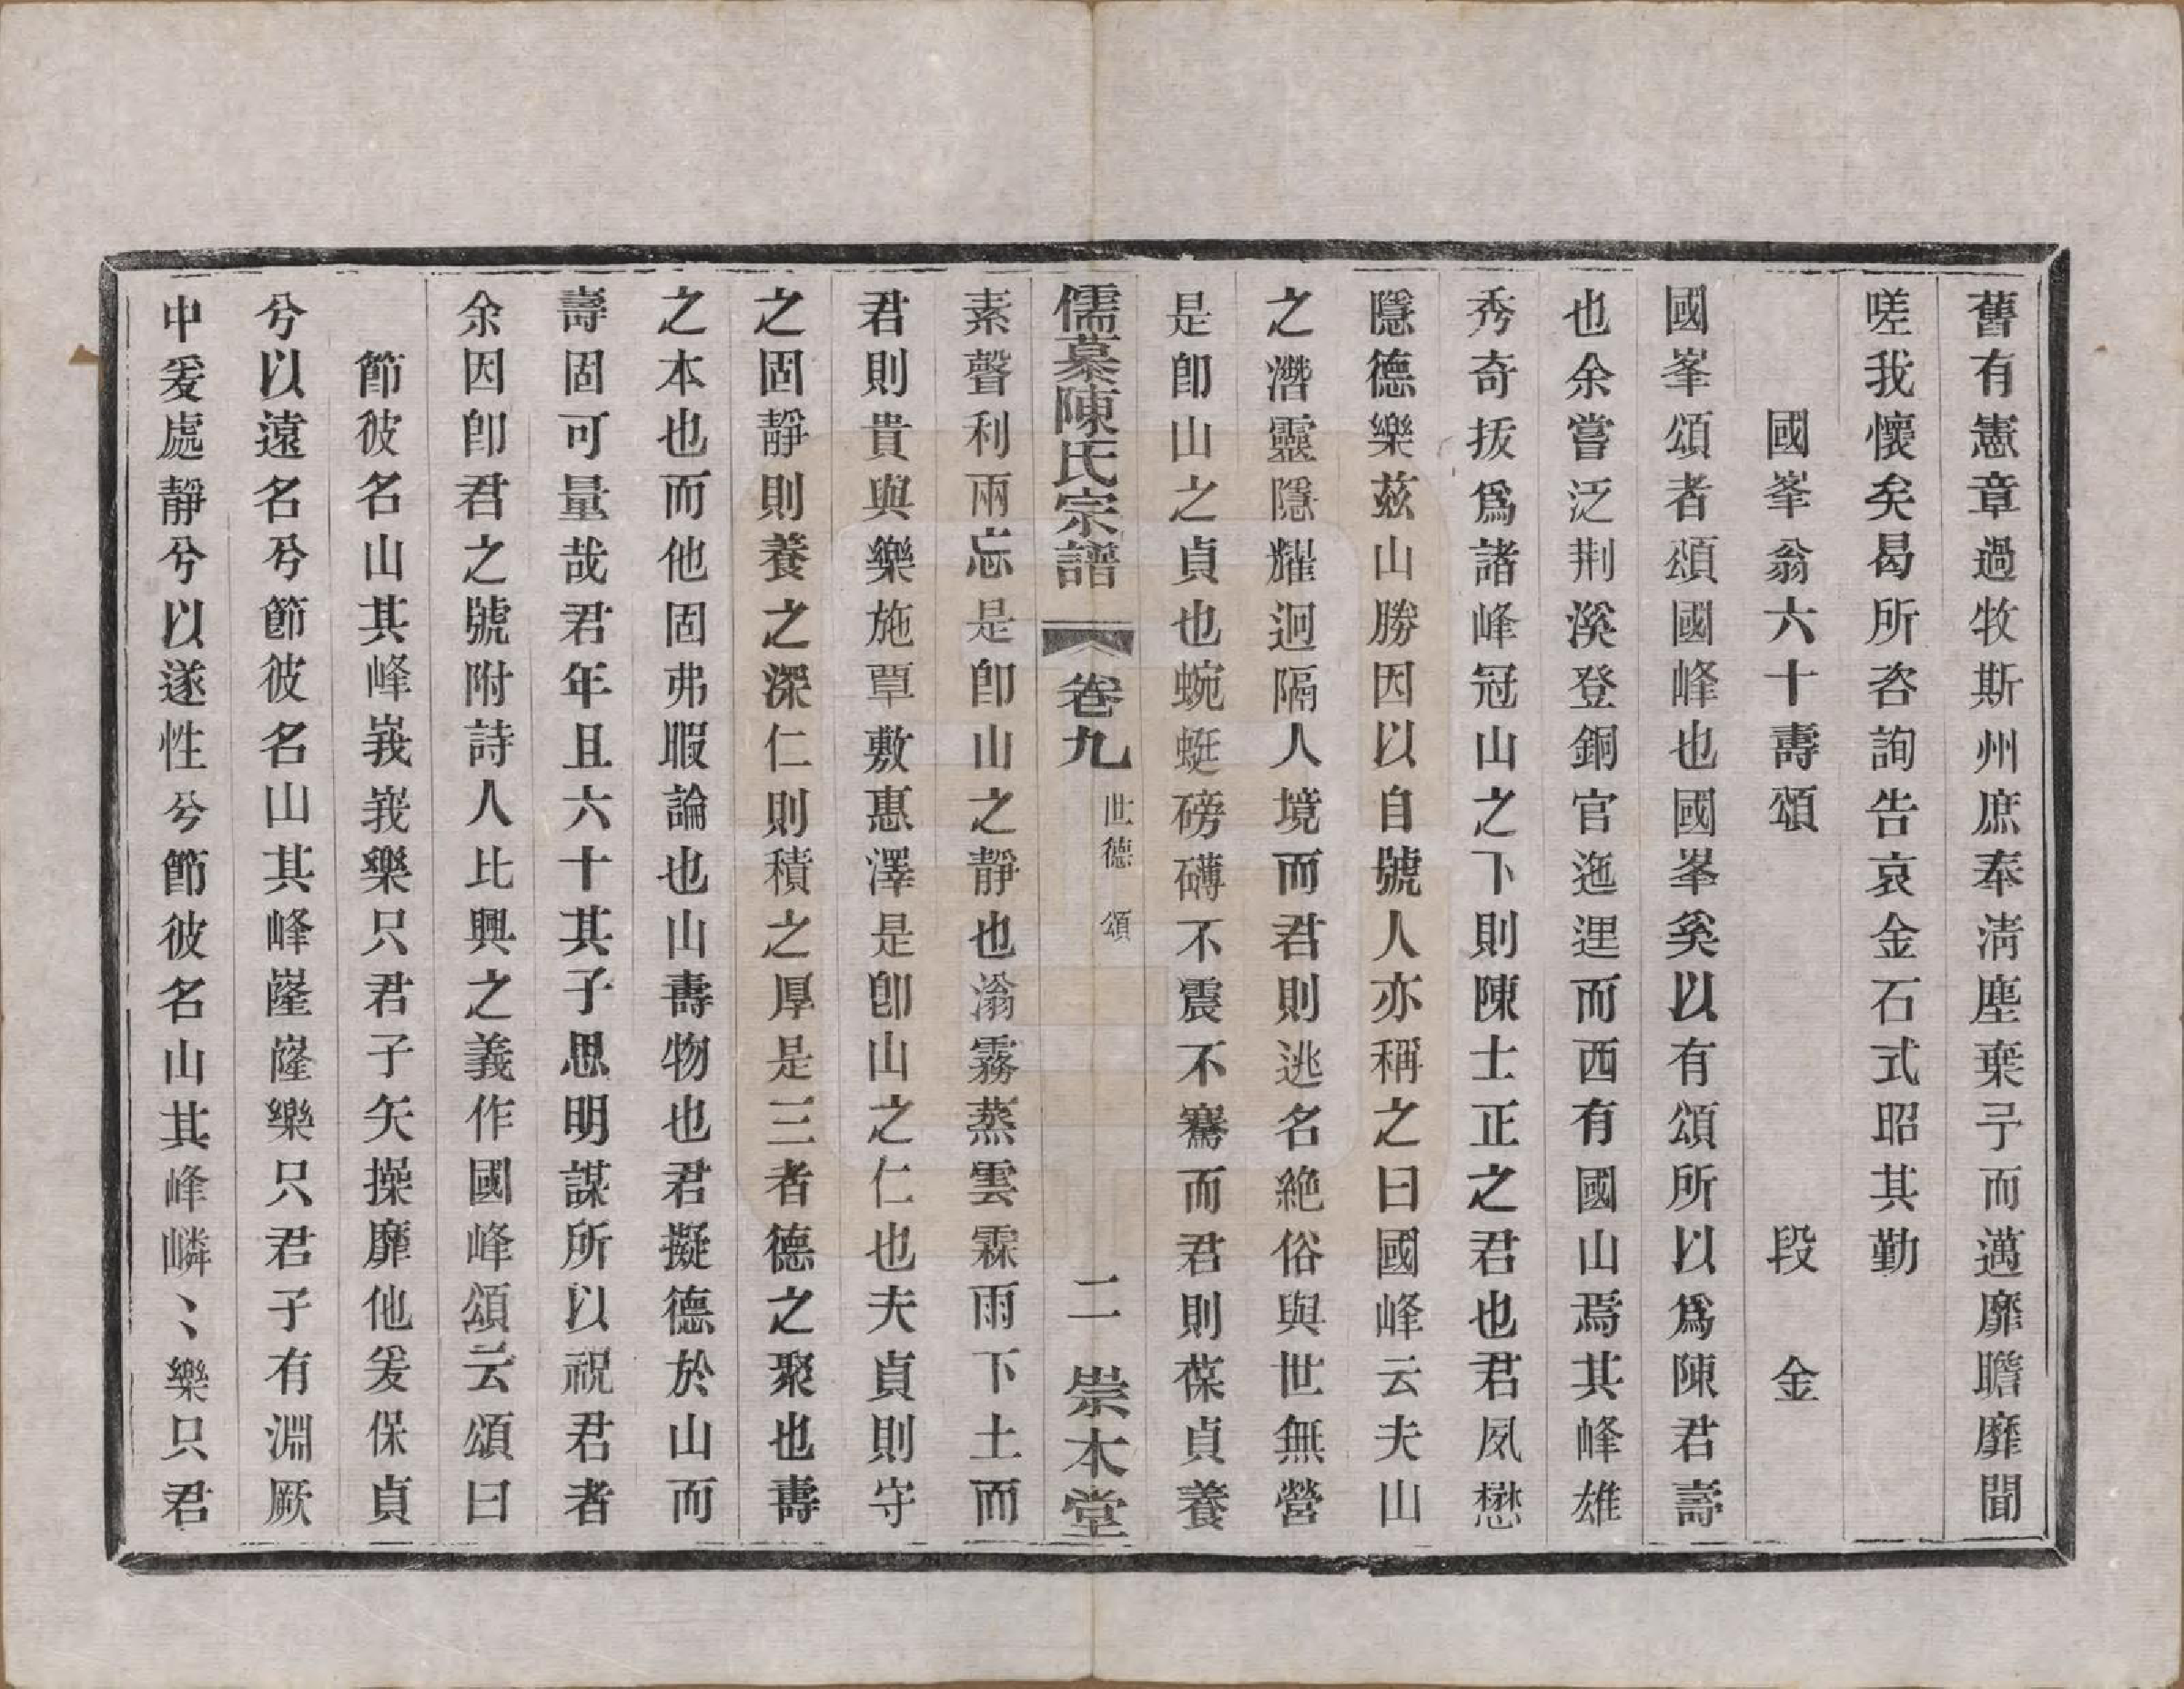 舊有憲章過牧斯州庶奉淸塵棄予而邁靡瞻靡聞
嗟我懷矣曷所咨詢告哀金石式昭其勤
國峯翁六十壽頌 段金
國峯頌者頌國峰也國峯奚以有頌所以爲陳君壽
也余嘗泛荆溪登銅官迤逕而西有國山焉其峰雄
秀奇拔爲諸峰冠山之下則陳士正之君也君夙懋
隱德樂兹山勝因以自號人亦稱之曰國峰云夫山
之濳靈隱耀迥隔人境而君則逃名絶俗與世無營
是卽山之貞也蜿蜒磅礴不震不騫而君則葆貞養
儒慕陳氏宗譜 卷九 世德 頌 二 崇本堂
素聲利兩忘是卽山之靜也滃霧蒸雲霖雨下土而
君則貴與樂施覃敷惠澤是卽山之仁也夫貞則守
之固靜則養之深仁則積之厚是三者德之聚也壽
之本也而他固弗暇論也山壽物也君擬德於山而
壽固可量哉君年且六十其子思明謀所以祝君者
余因卽君之號附詩人比興之義作國峰頌云頌曰
節彼名山其峰峩峩樂只君子矢操靡他爰保貞
兮以遠名兮節彼名山其峰嶐嶐樂只君子有淵厥
中爰處靜兮以遂性兮節彼名山其峰嶙〻樂只君